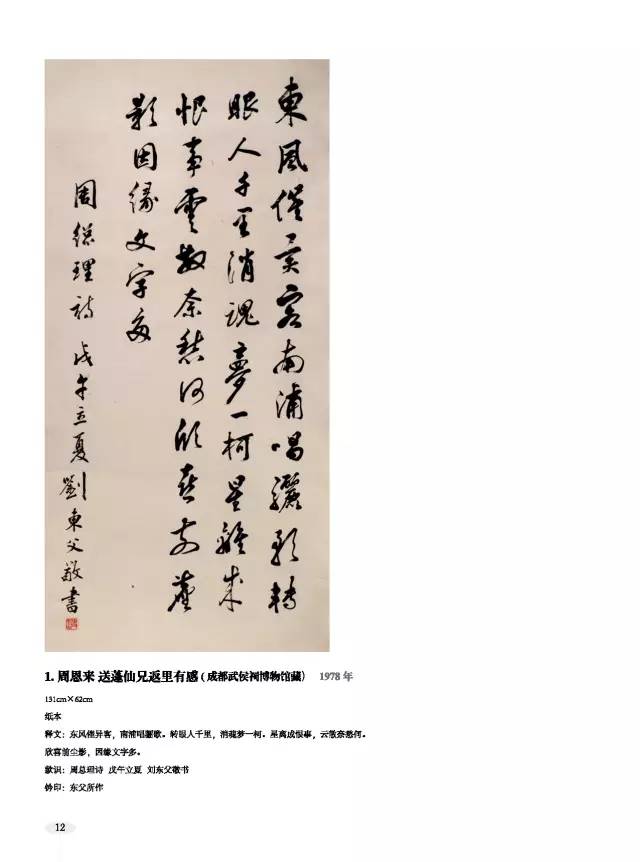 東風催異客南浦唱驪歌轉
眼人千里消魂夢一柯星離成
恨事雲散奈愁何欣喜前塵
影因緣文字多
周總理詩 戊午立夏 劉東父敬書
1. 周恩来 送蓬仙兄返里有感 ( 成都武侯祠博物馆藏) 1978 年
131cm×62cm
纸本
释文：东风催异客，南浦唱骊歌。转眼人千里，消魂梦一柯。星离成恨事，云散奈愁何。
欣喜前尘影，因缘文字多。
款识：周总理诗 戊午立夏 刘东父敬书
钤印：东父所作
12